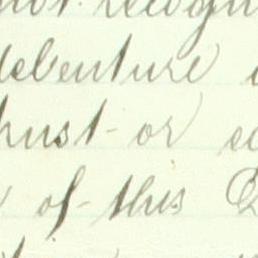 not recogn
debenture
trust or
of this